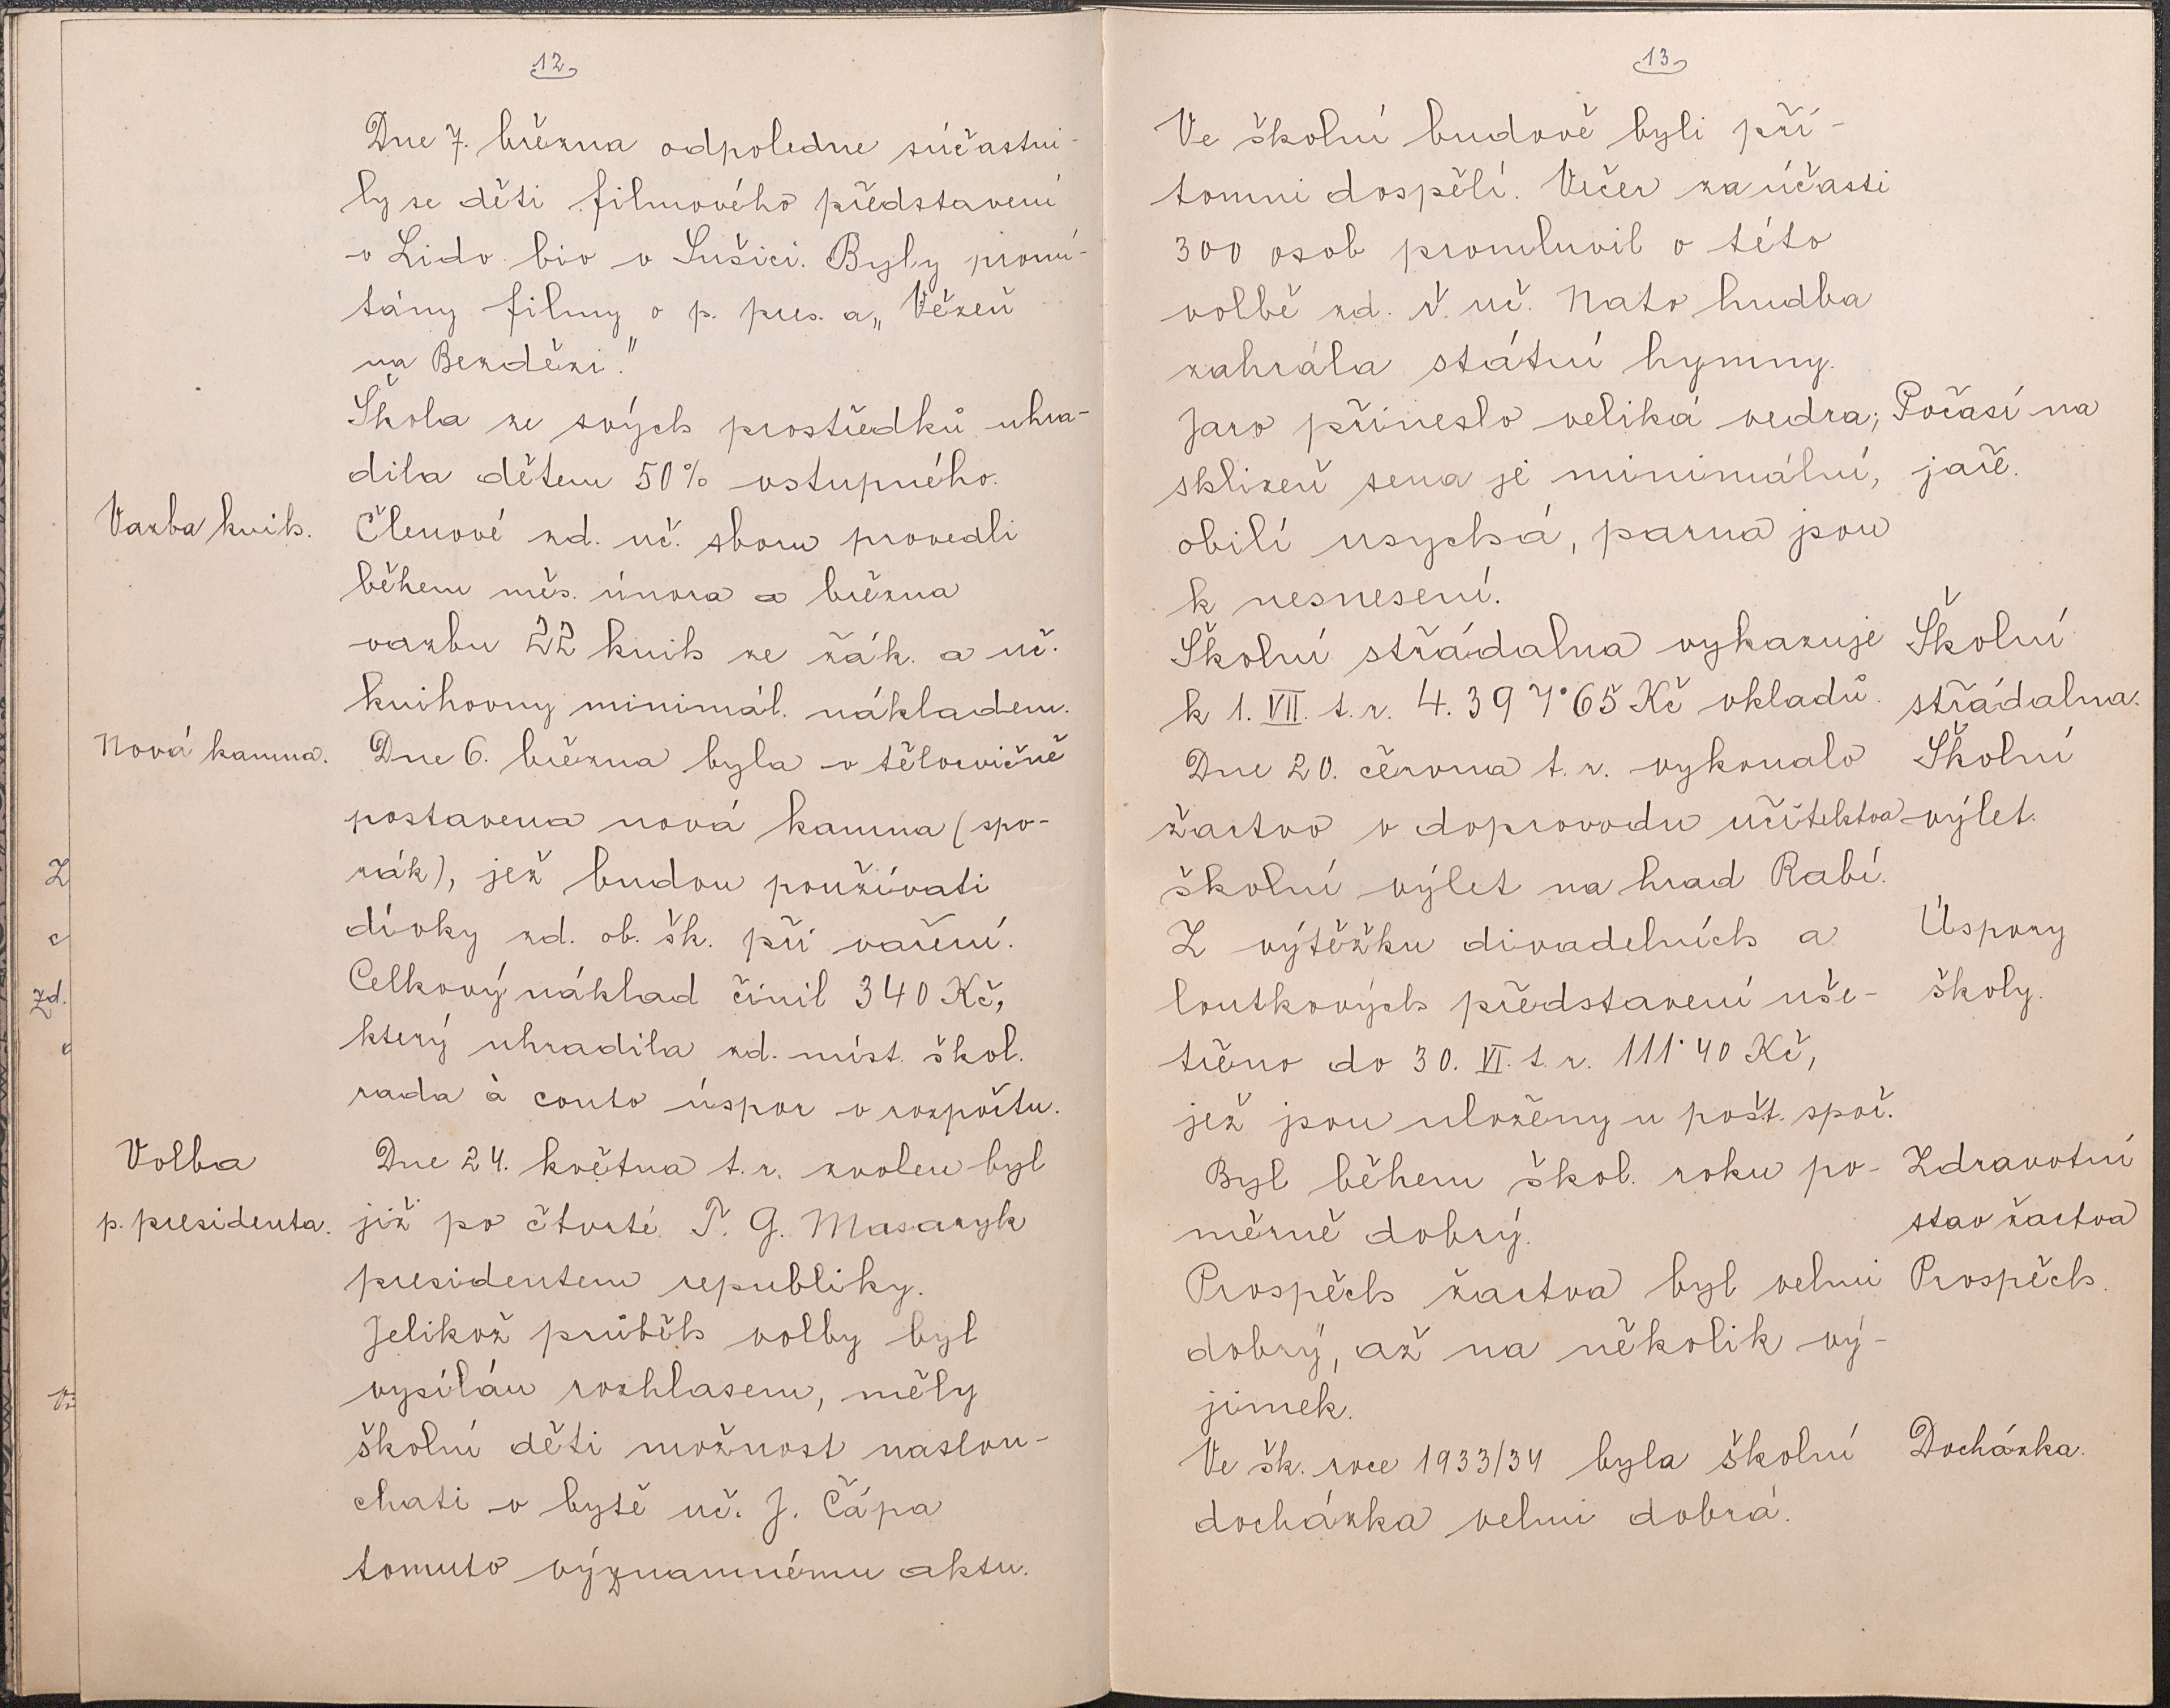 12
Dne 7. března odpoledne súčastni-
ly se děti filmového představení
v Lido bio v Sušici. Byly promí-
tány filmy o p. pres. a „Vězeň
na Bezdězi."
Škola ze svých prostředků uhra-
dila dětem 50% vstupného.
Vazba knih.
Členové zd. uč. sboru provedli
během měs. února a března
vazbu 22 knih ze žák. a uč.
knihovny minimál. nákladem.
Nová kamna.
Dne 6. března byla v tělocvičně
postavena nová kamna (spo-
rák), jež budou používati
dívky zd. ob. šk. při vaření.
Celkový náklad činil 340 Kč,
který uhradila zd. míst. škol.
rada à conto úspor v rozpočtu.
Volba
p. presidenta.
Dne 24. května t. r. zvolen byl
již po čtvrté T. G. Masaryk
presidentem republiky.
Jelikož průběh volby byl
vysílán rozhlasem, měly
školní děti možnost naslou-
chati v bytě uč. J. Čápa
tomuto významnému aktu.
Z
c
zd.
13
Ve školní budově byli pří-
tomni dospělí. Večer za účasti
300 osob promluvil o této
volbě zd. ř. uč. Nato hudba
zahrála státní hymny.
Jaro přineslo veliká vedra;
sklizeň sena je minimální,
obilí usychá, parna jsou
k nesnesení.
Počasí na
jaře.
Školní střádalna vykazuje
k 1. VII. t. r. 4.397·65 Kč vkladů.
Školní
střádalna.
Dne 20. června t. r. vykonalo
žactvo v doprovodu učitelstva
školní výlet na hrad Rabí.
Školní
výlet.
Z výtěžku divadelních a
loutkových představení uše-
třeno do 30. VI. t. r. 111·40 Kč,
jež jsou uloženy u pošt. spoř.
Úspory
školy.
Byl během škol. roku po-
měrně dobrý.
Zdravotní
stav žactva
Prospěch žactva byl velmi
dobrý, až na několik vý-
jimek.
Prospěch.
Ve šk. roce 1933/34 byla školní
docházka velmi dobrá.
Docházka.